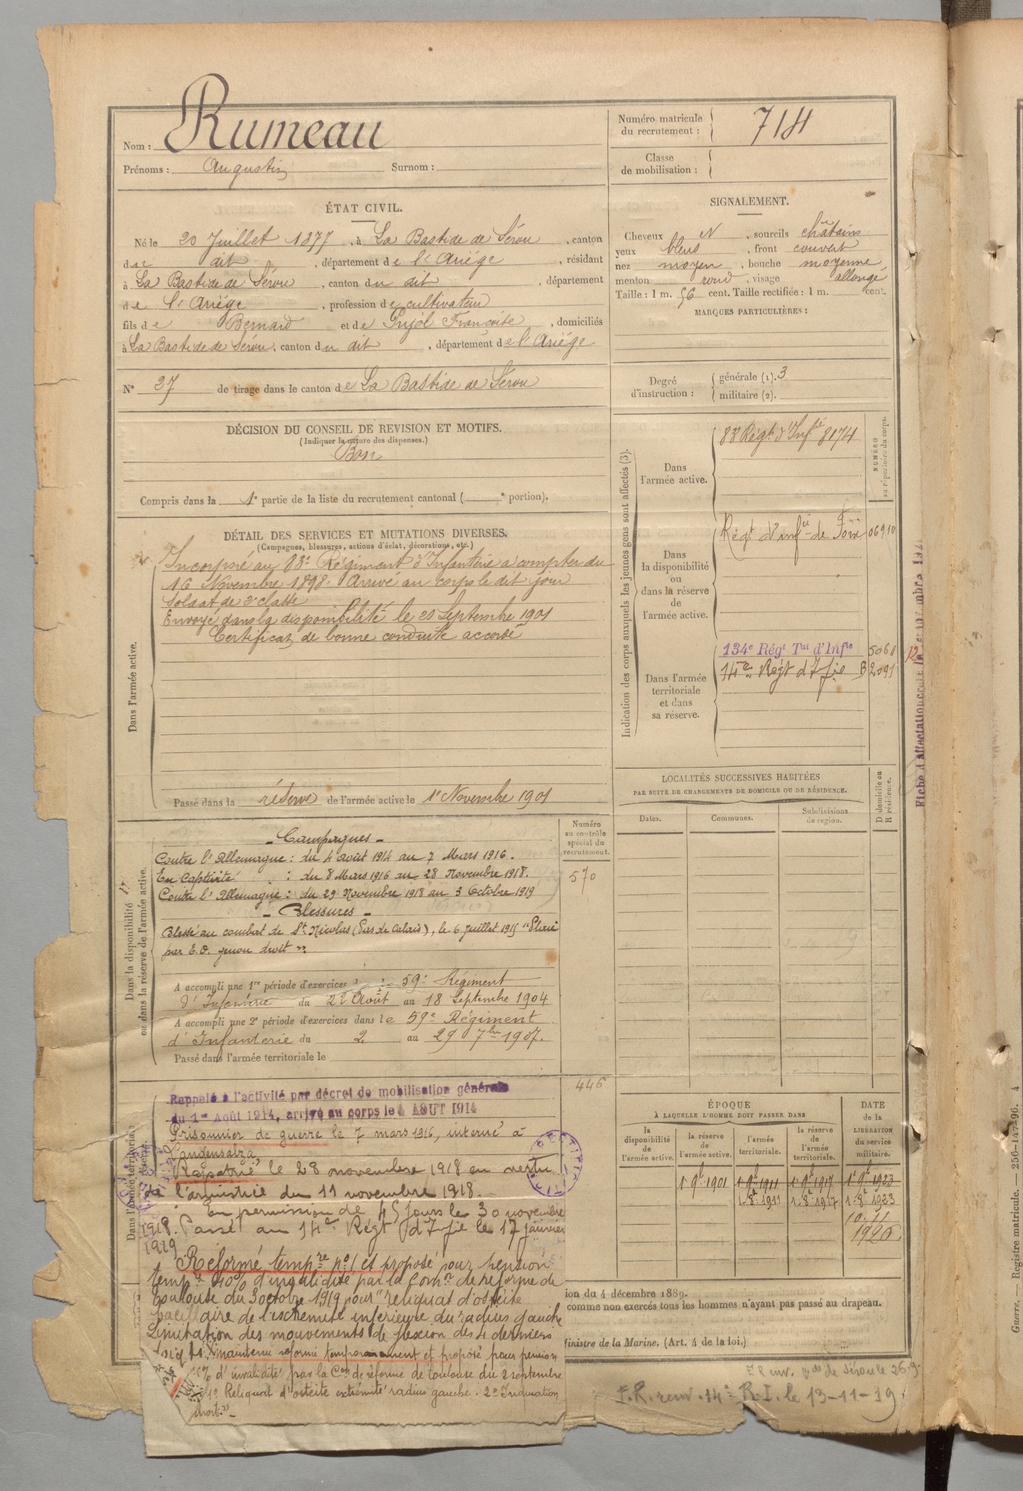 Nom : Rumeau
Prénoms : Augustin Surnom :
Numéro matricule du recrutement : 714
Classe de mobilisation :
ÉTAT CIVIL.
Né le 20 Juillet 1877, à La Bastide de Sérou, canton
de dit, département de l'Ariège, résidant
à La Bastide de Sérou, canton du dit, département
de l'Ariège, profession de cultivateur
fils de Bernard et de Pujol Françoise, domiciliés
à La Bastide de Sérou, canton du dit, département de l'Ariège
N° 27 de tirage dans le canton de La Bastide de Sérou
SIGNALEMENT.
Cheveux N, sourcils châtains
yeux bleus, front couvert
nez moyen, bouche moyenne
menton rond, visage allongé
Taille : 1 m. 56 cent. Taille rectifiée : 1 m. cent.
MARQUES PARTICULIÈRES :
Degré d'instruction : générale (1). 3
militaire (2).
DÉCISION DU CONSEIL DE REVISION ET MOTIFS.
(Indiquer la nature des dispenses.)
Bon
Compris dans la 1e partie de la liste du recrutement cantonal ( e portion).
DÉTAIL DES SERVICES ET MUTATIONS DIVERSES.
(Campagnes, blessures, actions d'éclat, décorations, etc.)
Dans l'armée active.
Incorporé au 88e Régiment d'Infanterie à compter du
16 Novembre 1898. Arrivé au corps le dit jour
soldat de 2e classe
Envoyé dans la disponibilité le 20 Septembre 1901
Certificat de bonne conduite accordé
Passé dans la réserve de l'armée active le 1e Novembre 1901
Indication des corps auxquels les jeunes gens sont affectés (3).
NUMÉRO au répertoire du corps.
Dans l'armée active.
88 Régt d'Infie 8174
Dans la disponibilité ou dans la réserve de l'armée active.
Régt d'infie de Foix 06910
Dans l'armée territoriale et dans sa réserve.
134e Régt Tal d'Infie 5060
14e Régt d'Ifie B 2091
12
LOCALITÉS SUCCESSIVES HABITÉES
PAR SUITE DE CHANGEMENTS DE DOMICILE OU DE RÉSIDENCE.
Dates. Communes. Subdivisions de région. D domicile ou R résidence.
Dans la disponibilité
ou dans la réserve de l'armée active.
Numéro au contrôle spécial du recrutement.
570
- Campagnes -
Contre l'Allemagne : du 4 août 1914 au 7 Mars 1916.
En Captivité : du 8 Mars 1916 au 28 Novembre 1918.
Contre l'Allemagne : du 29 Novembre 1918 au 3 Octobre 1919
- Blessures -
Blessé au combat de St Nicolas (Pas de Calais), le 6 juillet 1915 "Plaie
par E.O. genou droit"
A accompli une 1re période d'exercices 59e Régiment
d'Infanterie du 22 Août au 18 Septembre 1904
A accompli une 2e période d'exercices dans le 59e Régiment
d'Infanterie du 2 au 29 7bre 1907.
Passé dans l'armée territoriale le
446
Rappelé à l'activité par décret de mobilisation générale
du 1er Août 1914, arrivé au corps le 4 AOUT 1914
Prisonnier de guerre le 7 mars 1916, interné à
Langensalza
Rapatrié le 28 novembre 1918 en vertu
de l'armistice du 11 novembre 1918.
En permission de 45 jours le 30 novembre
1918. Passé au 14e Régt d'Ifie le 17 janvier
1919
Réformé tempre n°1 et proposé pour pension
tempre 40% d'invalidité par la Comon de réforme de
Toulouse du 3 octobre 1919 pour "reliquat d'ostéite
de l'extrémité inférieure du radius gauche
Limitation des mouvements de flexion des 4 derniers
doigts. Maintenu réformé temporairement et proposé pour pension
% d'invalidité par la Con de réforme de Toulouse du 2 septembre
Reliquat d'ostéite extrémité radius gauche. 2°
droit."
ÉPOQUE
À LAQUELLE L'HOMME DOIT PASSER DANS
la disponibilité de l'armée active. la réserve de l'armée active. l'armée territoriale. la réserve de l'armée territoriale.
DATE de la LIBÉRATION du service militaire.
1. 9e 1901 1. 9e 1911 1. 9e 1917 1. 9e 1923
1. 8e 1911 1. 8e 1917 1. 8e 1923
10.11
1926
ion du 4 décembre 1889.
comme non exercés tous les hommes n'ayant pas passé au drapeau.
Ministre de la Marine. (Art. 4 de la loi.)
F.R. renv. 14e R.I. le 13-11-19
Guerre. — Registre matricule. — 256-147-96. 4